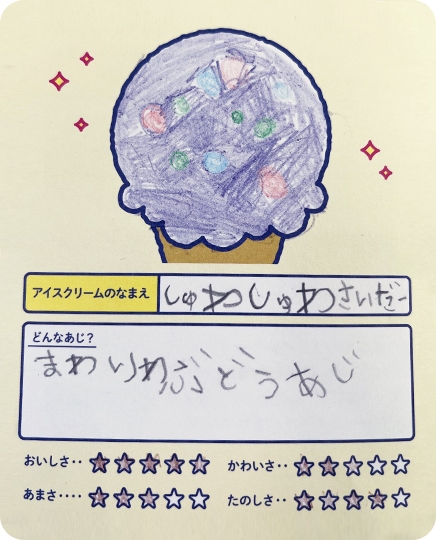 アイスクリームのなまえ
しゅわしゅわさいだー
どんなあじ?
まわりわぶどうあじ
おいしさ‥ ★★★★★
かわいさ‥ ★★☆☆☆
あまさ‥‥ ★★★☆☆
たのしさ‥ ★★★★☆